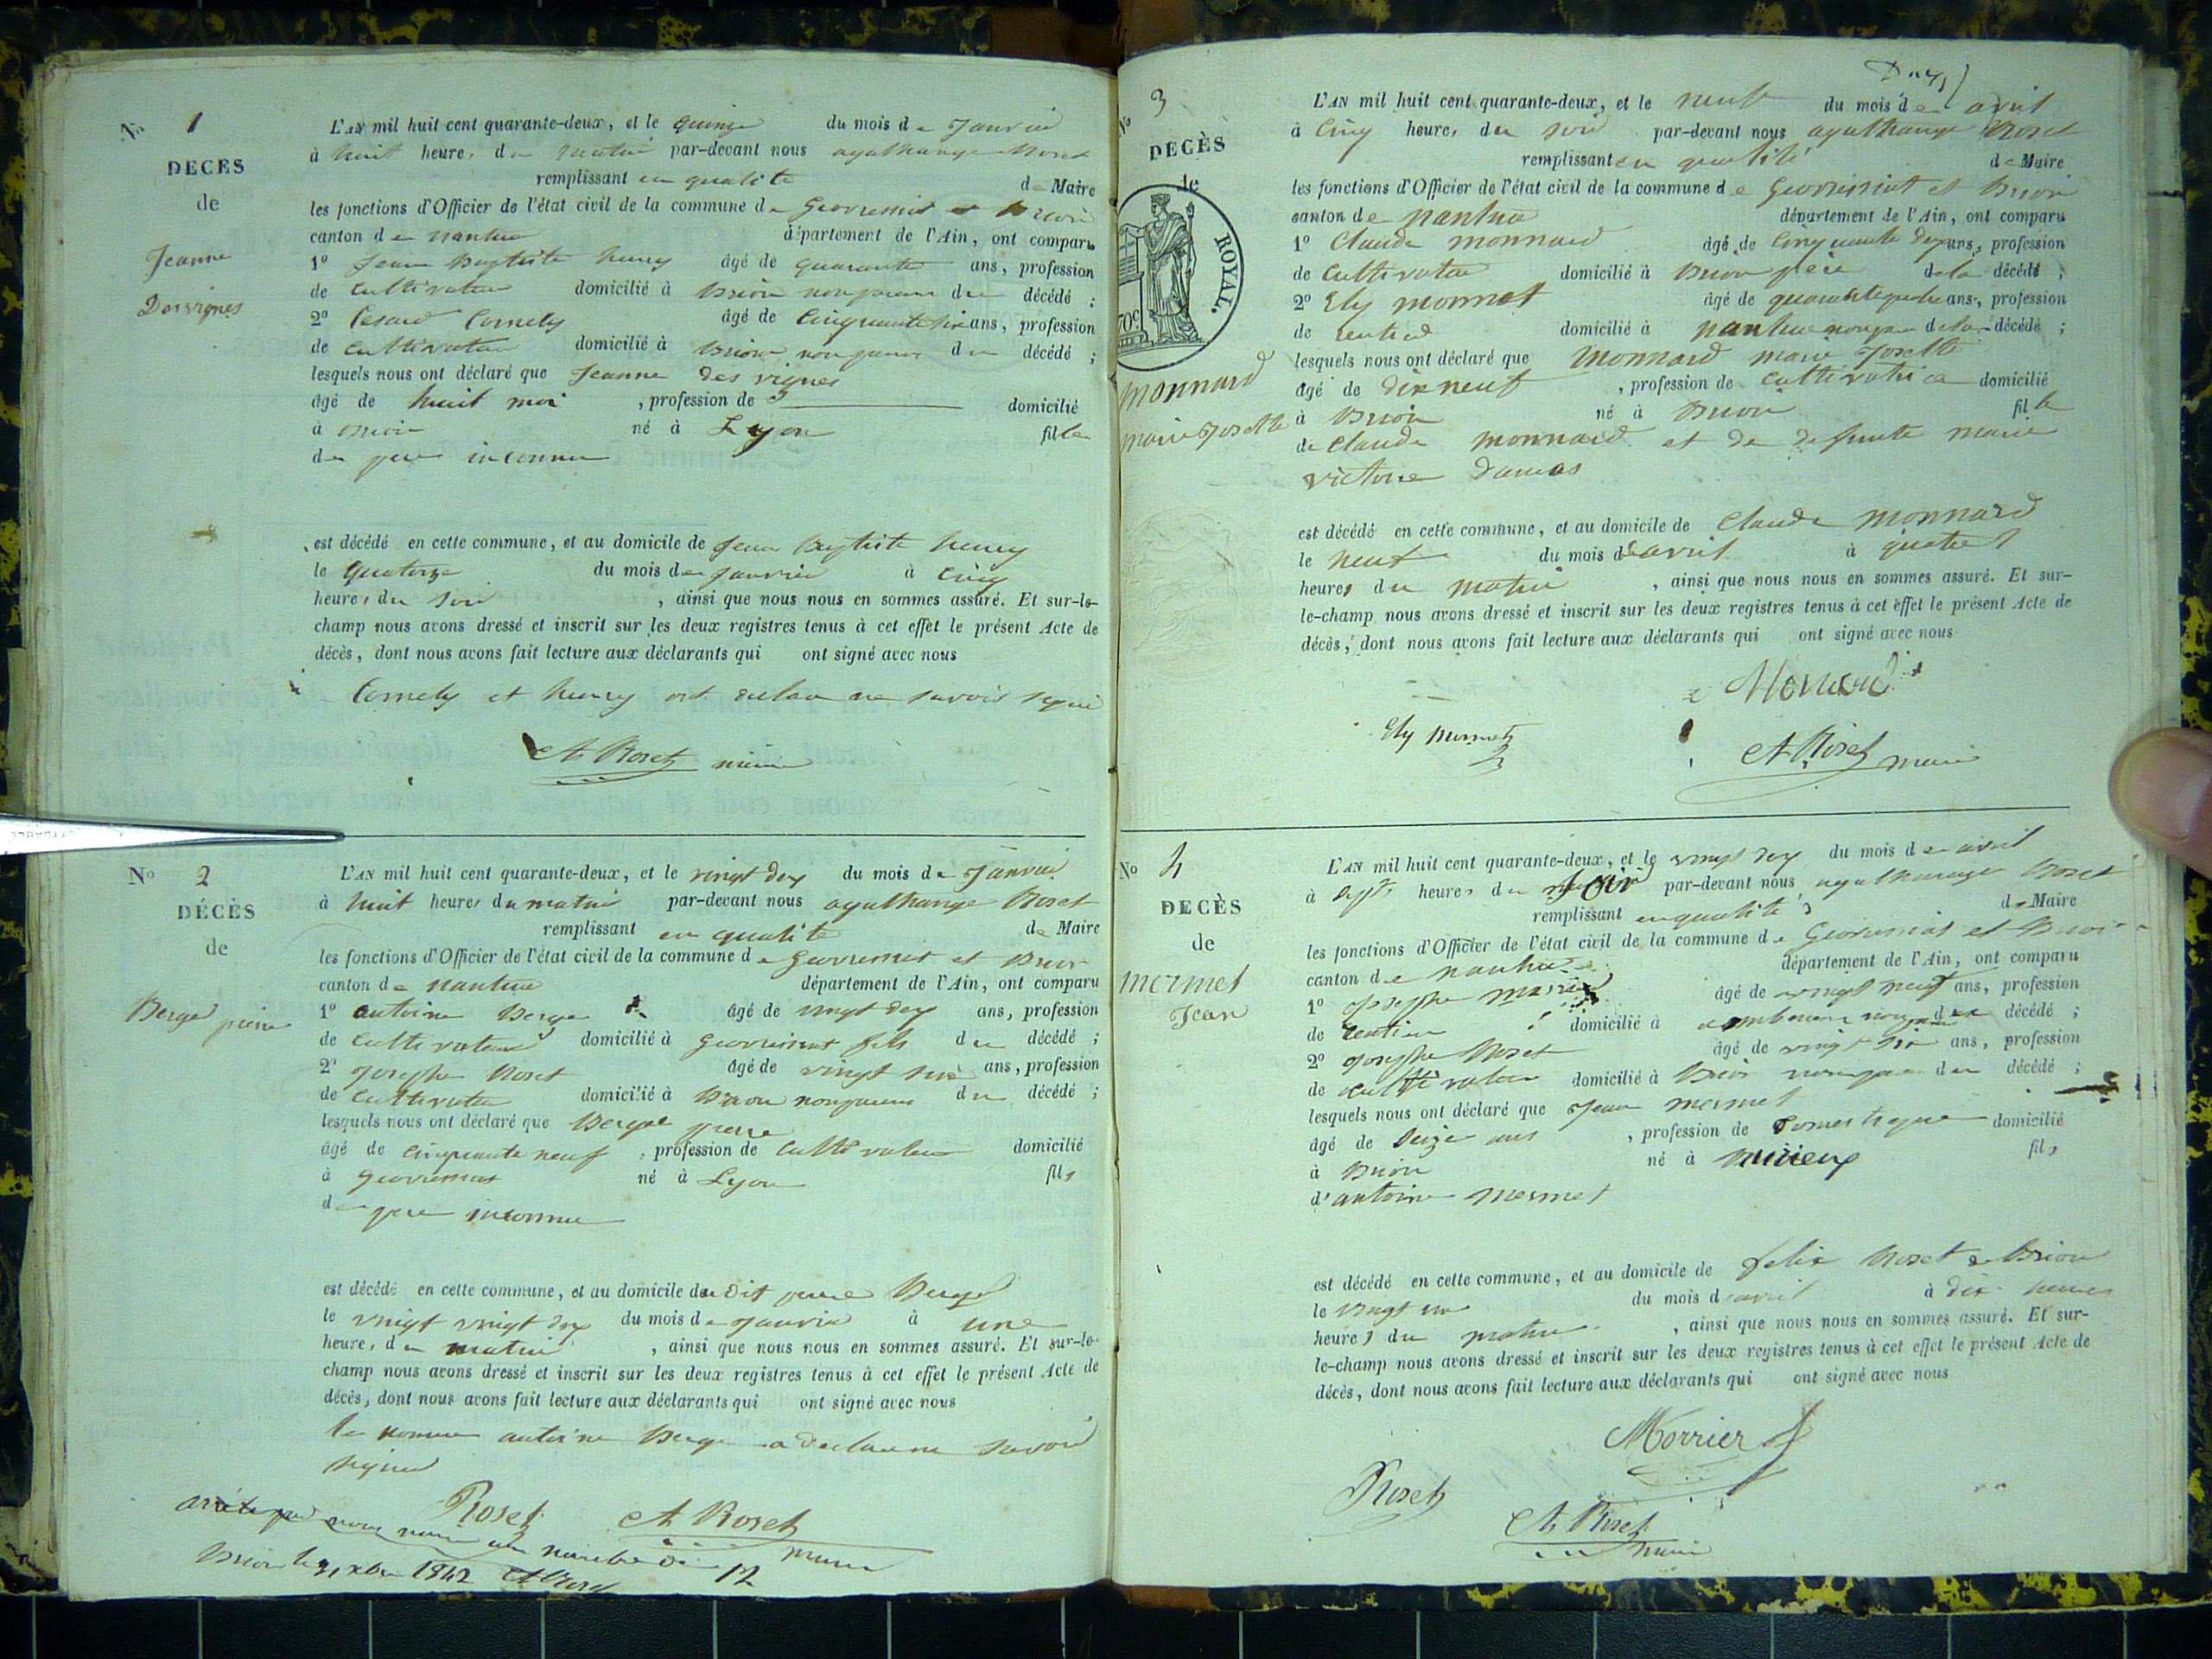 N° 1
DÉCÈS
de
Jeanne
Desvignes
L'AN mil huit cent quarante-deux, et le quinze du mois de Janvier
à huit heures du matin par-devant nous agathange Roset
remplissant en qualité de Maire
les fonctions d'Officier de l'état civil de la commune de Geovreissiat et Brion
canton de nantua département de l'Ain, ont comparu
1° Jean Baptiste henry âgé de quarante ans, profession
de cultivateur domicilié à Brion non parent du décédé ;
2° Cesard Comety âgé de cinquante six ans, profession
de cultivateur domicilié à Brion non parent du décédé ;
lesquels nous ont déclaré que Jeanne des vignes
âgé de huit moi , profession de domicilié
à Brion né à Lyon fille
de pere inconnu
est décédé en cette commune, et au domicile de Jean Baptiste henry
le quatorze du mois de janvier à cinq
heures du soir , ainsi que nous nous en sommes assuré. Et sur-le-
champ nous avons dressé et inscrit sur les deux registres tenus à cet effet le présent Acte de
décès, dont nous avons fait lecture aux déclarants qui ont signé avec nous
Comety et henry ont declare ne savoir signer
A. Roset maire
N° 2
DÉCÈS
de
Berger pierre
L'AN mil huit cent quarante-deux, et le vingt deux du mois de Janvier
à huit heures du matin par-devant nous agathange Roset
remplissant en qualité de Maire
les fonctions d'Officier de l'état civil de la commune de Geovreissiat et Brion
canton de nantua département de l'Ain, ont comparu
1° antoine Berger âgé de vingt deux ans, profession
de cultivateur domicilié à Geovreissiat fils du décédé ;
2° Josephe Roset âgé de vingt six ans, profession
de cultivateur domicilié à Brion non parent du décédé ;
lesquels nous ont déclaré que Berger pierre
âgé de cinquante neuf , profession de cultivateur domicilié
à Geovreissiat né à Lyon fils
de pere inconnu
est décédé en cette commune, et au domicile du dit pierre Berger
le vingt vingt deux du mois de janvier à une
heure, du matin , ainsi que nous nous en sommes assuré. Et sur-le-
champ nous avons dressé et inscrit sur les deux registres tenus à cet effet le présent Acte de
décès, dont nous avons fait lecture aux déclarants qui ont signé avec nous
le nommé antoine Berger a declare ne savoir
signer
Roset A. Roset maire
arrété par nous maire au nombre de 12
Brion le 31 xbre 1842 A Roset
N° 3
DÉCÈS
de
ROYAL.
70c
monnard
marie Josette
L'AN mil huit cent quarante-deux, et le neuf du mois de avril
à cinq heures du soir par-devant nous agathange Roset
remplissant en qualité de Maire
les fonctions d'Officier de l'état civil de la commune de Geovreissiat et Brion
canton de nantua département de l'Ain, ont comparu
1° Claude monnard âgé de cinquante deux ans, profession
de cultivateur domicilié à Brion père de la décédé ;
2° Ely monnet âgé de quarante quatre ans, profession
de rentier domicilié à nantua non parent de la décédé ;
lesquels nous ont déclaré que monnard marie Josette
âgé de dix neuf , profession de cultivatrice domicilié
à Brion né à Brion fille
de Claude monnard et de defunte marie
victoire damas
est décédé en cette commune, et au domicile de Claude monnard
le neuf du mois d'avril à quatre
heures du matin , ainsi que nous nous en sommes assuré. Et sur-
le-champ nous avons dressé et inscrit sur les deux registres tenus à cet effet le présent Acte de
décès, dont nous avons fait lecture aux déclarants qui ont signé avec nous
Monard
Ely Monnet
A. Roset maire
N° 4
DÉCÈS
de
mermet
Jean
L'AN mil huit cent quarante-deux, et le vingt deux du mois de avril
à sept heures du soir par-devant nous agathange Roset
remplissant en qualité de Maire
les fonctions d'Officier de l'état civil de la commune de Geovreissiat et Brion
canton de nantua département de l'Ain, ont comparu
1° Josephe âgé de vingt neuf ans, profession
de rentier domicilié à non parent du décédé ;
2° Josephe Roset âgé de vingt six ans, profession
de cultivateur domicilié à Brion non parent du décédé ;
lesquels nous ont déclaré que Jean mermet
âgé de seize ans , profession de domestique domicilié
à Brion né à fils
d'antoine mermet
est décédé en cette commune, et au domicile de felix Roset a Brion
le vingt un du mois d'avril à dix heures
heures du matin , ainsi que nous nous en sommes assuré. Et sur-
le-champ nous avons dressé et inscrit sur les deux registres tenus à cet effet le présent Acte de
décès, dont nous avons fait lecture aux déclarants qui ont signé avec nous
Morrier
Roset
A. Roset
maire